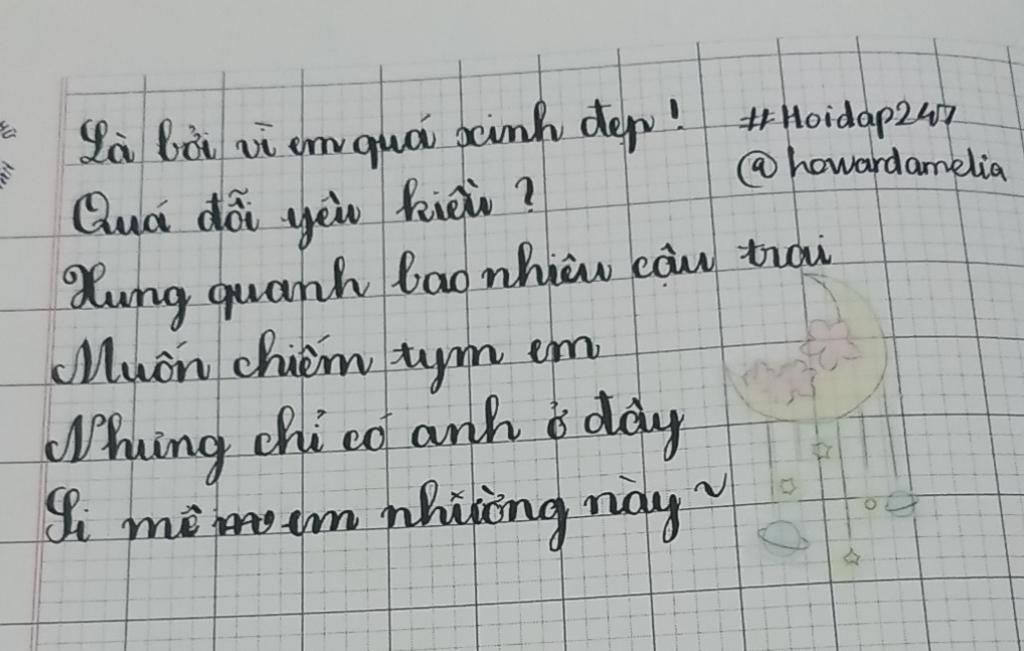 Là bởi vì em quá xinh đẹp!
#Hoidap247
@howardamelia
Quá đỗi yêu kiều?
Xung quanh bao nhiêu cậu trai
Muốn chiếm tym em
Nhưng chỉ có anh ở đây
Si mê em nhường này ~